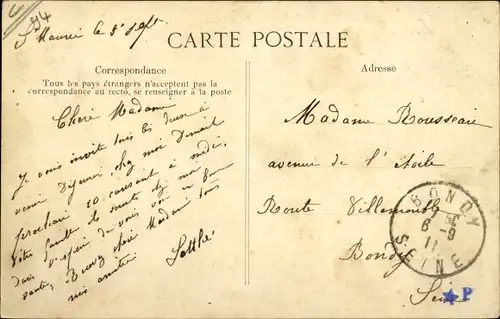 94
St Maurice le 5 Sept
CARTE POSTALE
Correspondance
Tous les pays étrangers n'acceptent pas la
correspondance au recto, se renseigner à la poste
Adresse
Chère Madame
Je vous invite tous les deux à
venir Déjeuner chez moi Dimanche
prochain 10 courant à midi.
votre famille
dans l'espoir de vous voir en bonne
santé, Recevez chère Madame tous
mes amitiés
Madame Rousseau
avenue de l'Etoile
Route Villemomble
Bondy
Seine
BONDY
6 -9
11
SEINE
P